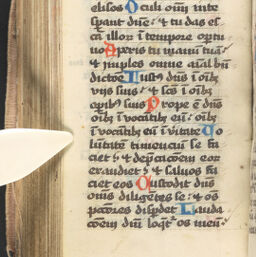 elisos Oculi oīm in te
spant dn̄e : & tu das es
cā illoꝝ ī tempore optu
no Aperis tu manū tuā :
& imples omne aīal bn̄
dictōe Iustꝰ dn̄s ī oībꝫ
vijs suis : & sc̄s ī oībꝫ
opībꝫ suis Prope ē dn̄s
oībꝫ īvocātibꝫ eū : oībꝫ
īvocātibꝫ eū ī vitate Uo
lūtatē timenciū se fa
ciet & dep̄cacōem eoꝝ
exaudiet : & saluos fa
ciet eos Custodit dn̄s
om̄s diligētes se : & os
pctōres disꝑdet Lauda
cōem dn̄i loq̄t os meū :